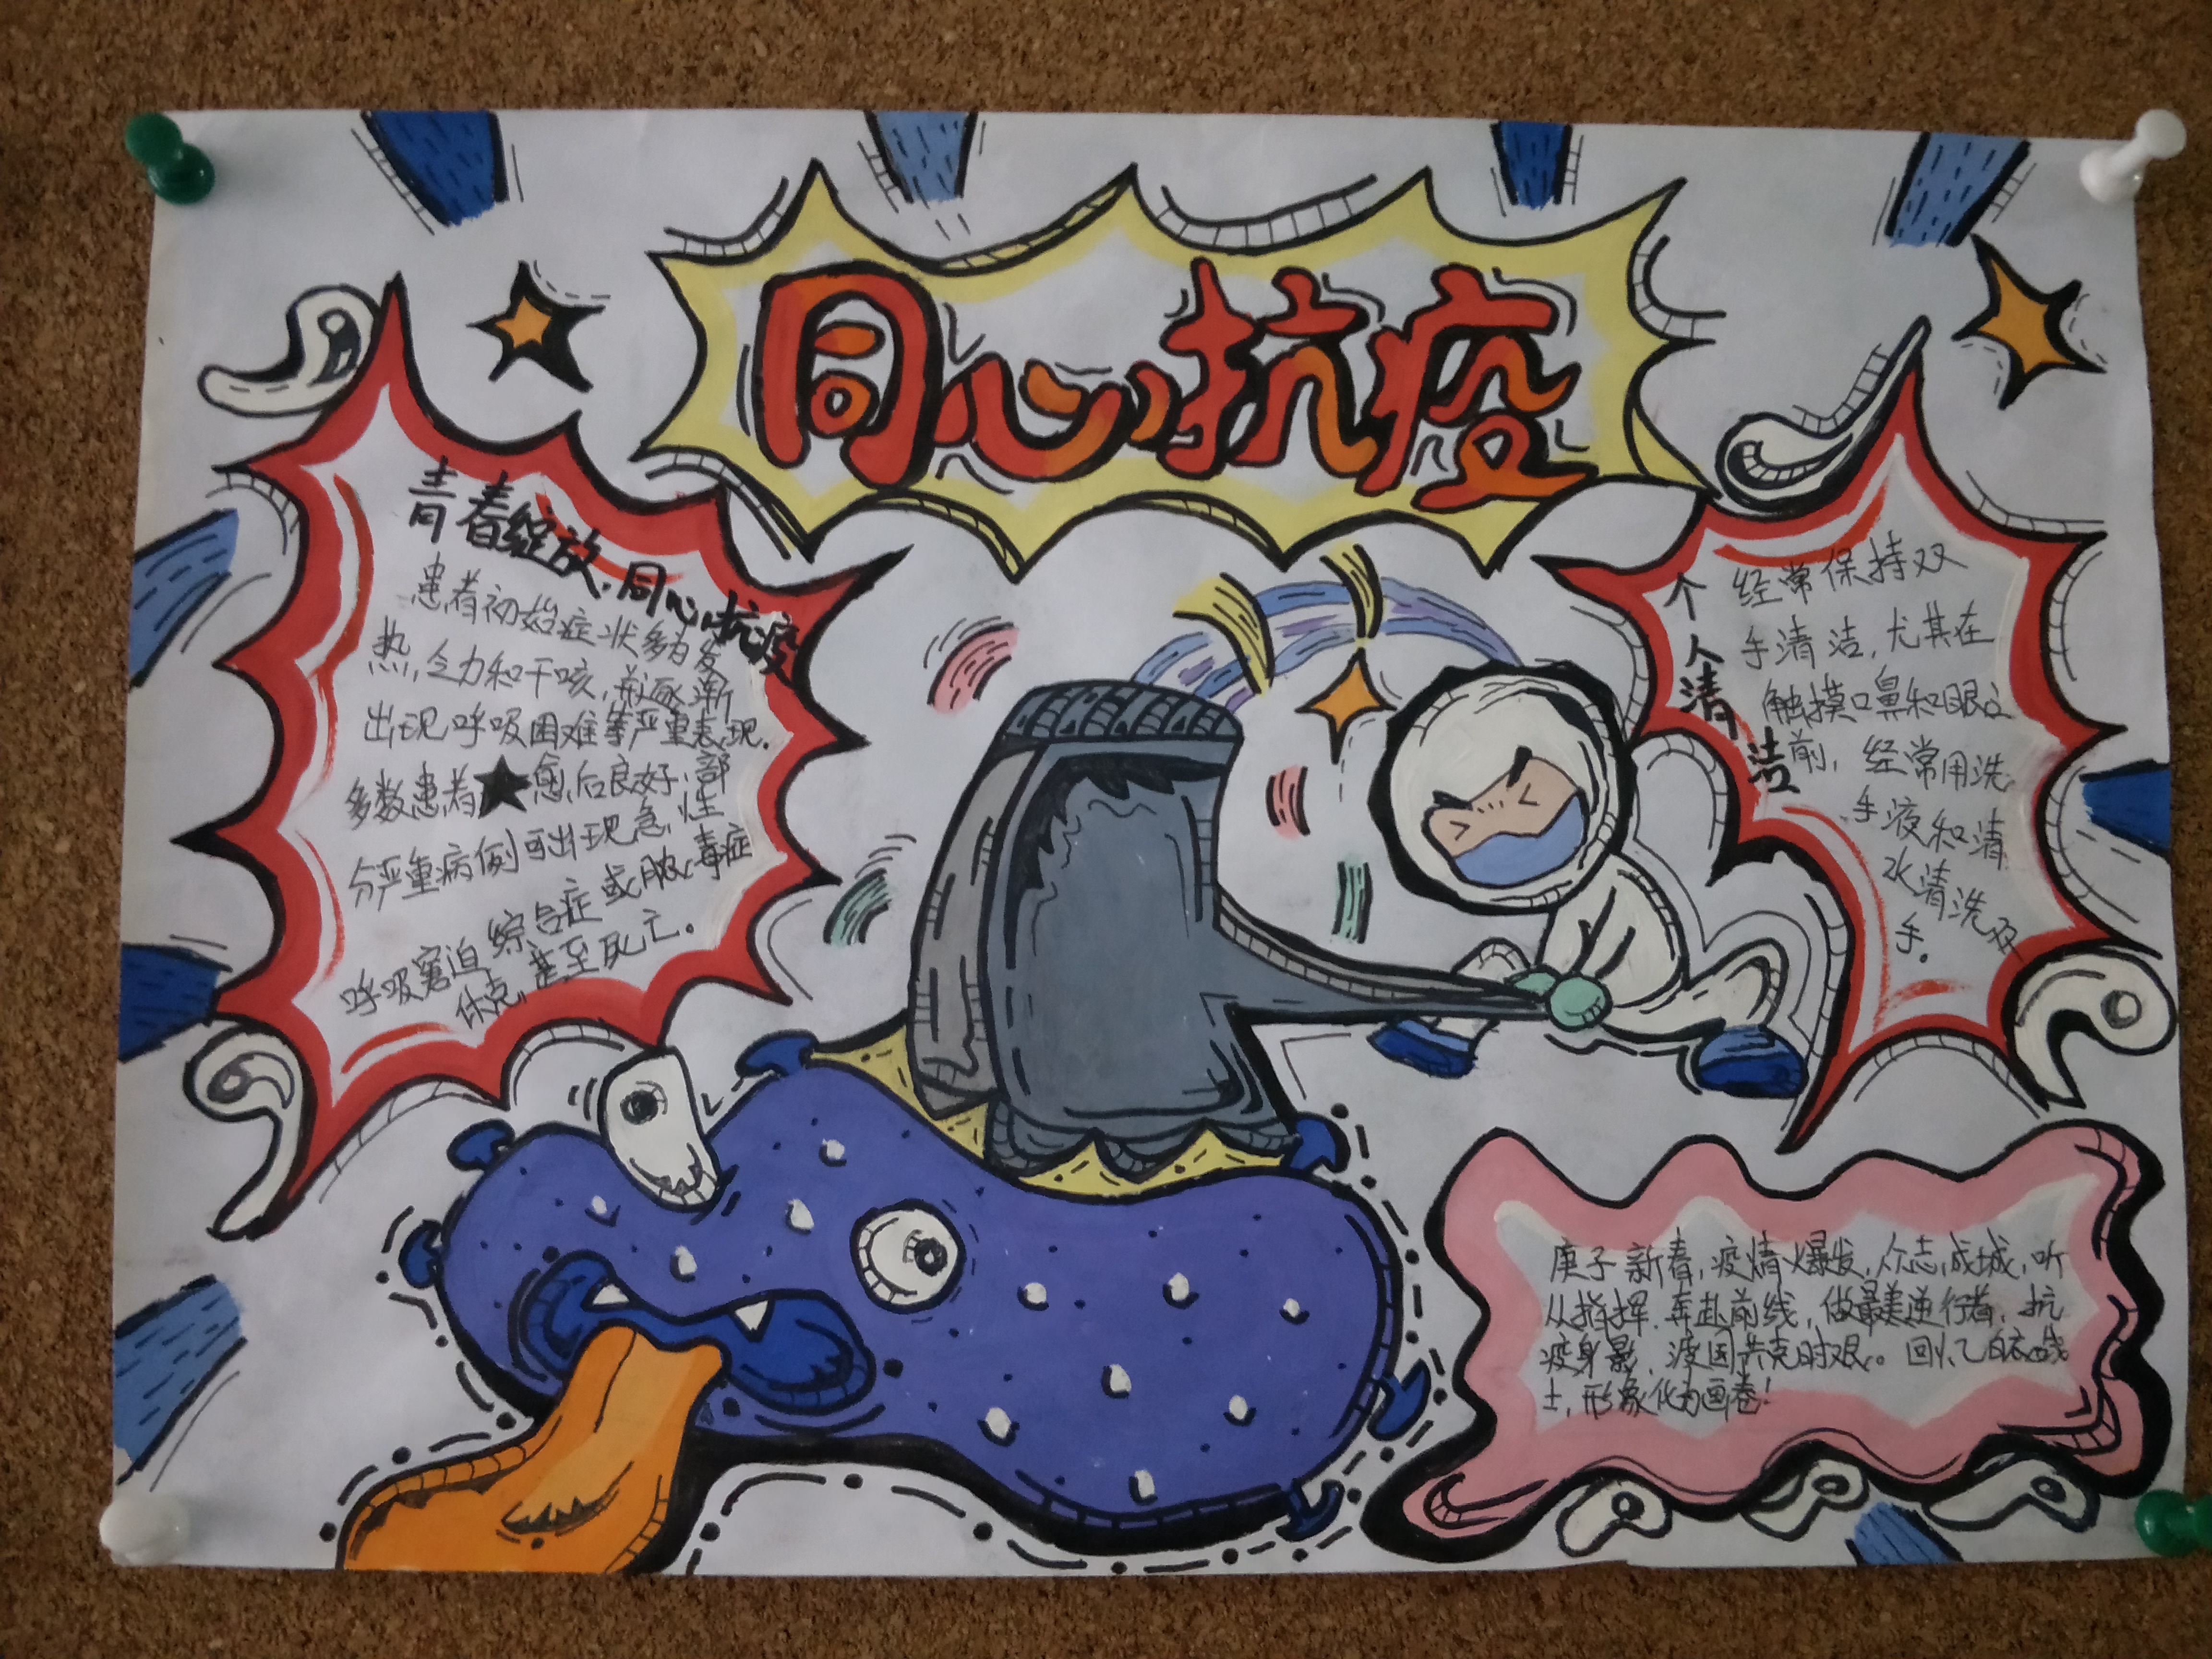 同心抗疫
青春绽放,同心抗疫
患者初始症状多为发
热,乏力和干咳,并逐渐
出现呼吸困难等严重表现.
多数患者★愈后良好,部
分严重病例可出现急性
呼吸窘迫综合症或脓毒症
休克,甚至死亡.
个人清洁
经常保持双
手清洁,尤其在
触摸口鼻和眼之
前,经常用洗
手液和清
水清洗双
手.
庚子新春,疫情爆发,众志成城,听
从指挥.奔赴前线,做最美逆行者,抗
疫身影,渡国共克时艰。回忆白衣战
士,形象化为画卷!